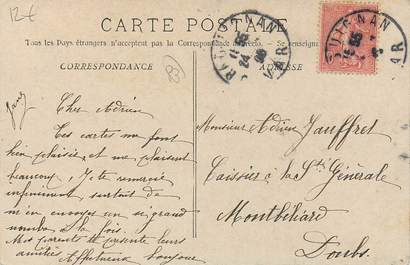 12€
CARTE POSTALE
Tous les Pays étrangers n'acceptent pas la Correspondance au recto. Se renseigner
CORRESPONDANCE
ADRESSE
VAR
VAR
Cher Adrien
Tes cartes me font
bien plaisir et me plaisent
beaucoup. Je te remercie
infiniment surtout de
m'en envoyer un si grand
nombre à la fois.
Mes parents te présente leurs
amitiés Affectueux bonjour
Monsieur Adrien Jauffret
Caissier à la Sté Générale
Montbéliard
Doubs